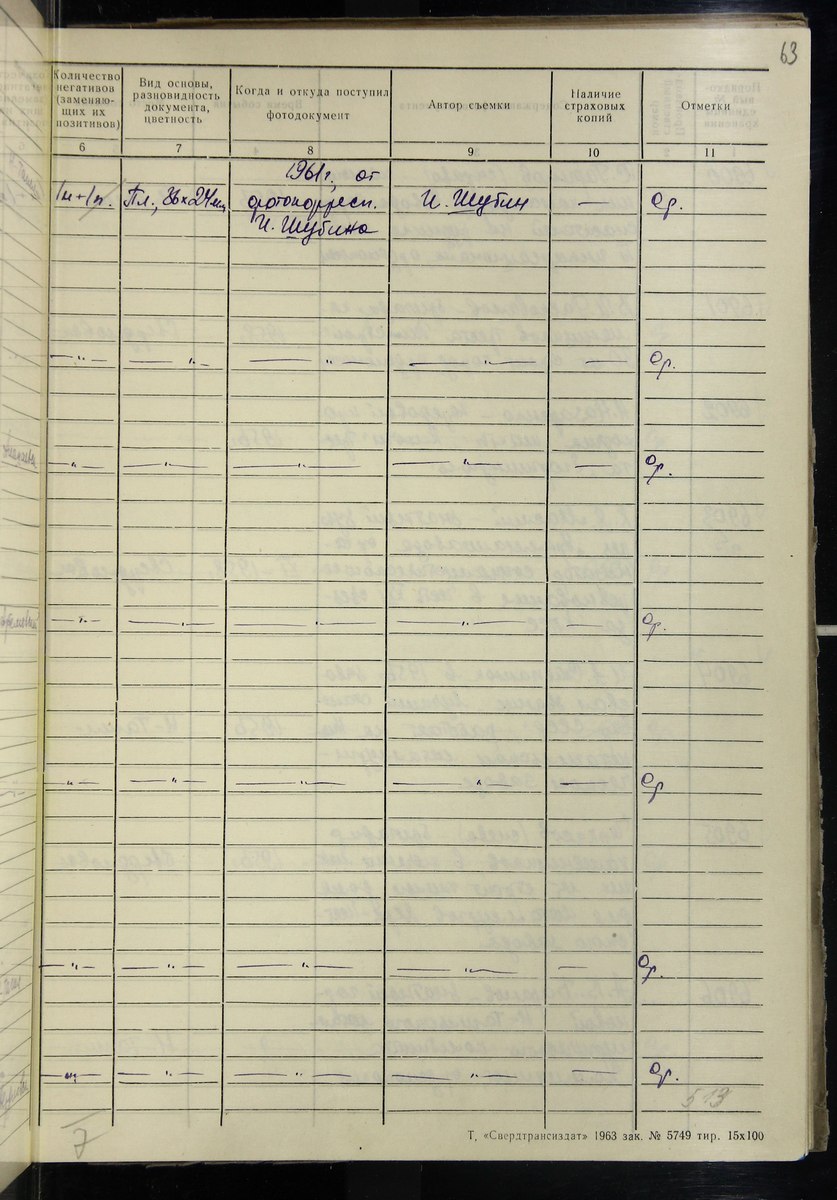 63
Количество негативов (заменяю- щих их позитивов)
Вид основы, разновидность документа, цветность
Когда и откуда поступил фотодокумент
Автор съемки
Наличие страховых копий
Отметки
6 7 8 9 10 11
1961г. от
1н+1п. Пл., 36х24мм фотокорресп. И. Шубин — Ор.
И. Шубина
—"— —"— —"— —"— — Ор.
—"— —"— —"— —"— — Ор.
—"— —"— —"— —"— — Ор.
—"— —"— —"— —"— — Ор.
—"— —"— —"— —"— — Ор.
—"— —"— —"— —"— — Ор.
513
7
Т, «Свердтрансиздат» 1963 зак. № 5749 тир. 15х100